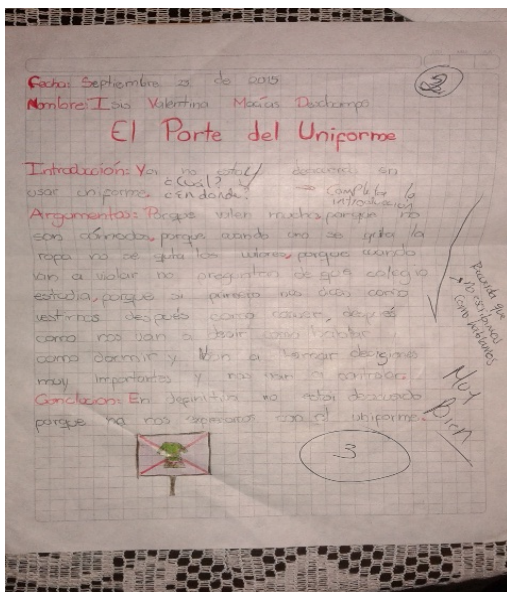 Fecha: Septiembre 23 de 2015
2
Nombre: Isis Valentina Macías Deschamps
El Porte del Uniforme
Introducción: Yo no estoy deacuerdo en
usar uniforme. ¿Cuál? ¿En donde? → Completar la introducción
Argumentos: Porque valen mucho, porque no
son cómodos, porque cuando uno se quita la
ropa no se quita los valores, porque cuando
van a violar no preguntan de qué colegio
estudia, porque si primero nos dicen como
vestirnos después como comer, después
como nos van a desir como hablar
como dormir y Van a tomar decisiones
muy importantes y nos van a controlar.
Conclusion: En definitiva no estoi deacuerdo
porque no nos expresamos con el uniforme.
Recuerda que
no escribimos
como hablamos
Muy
Bien
3